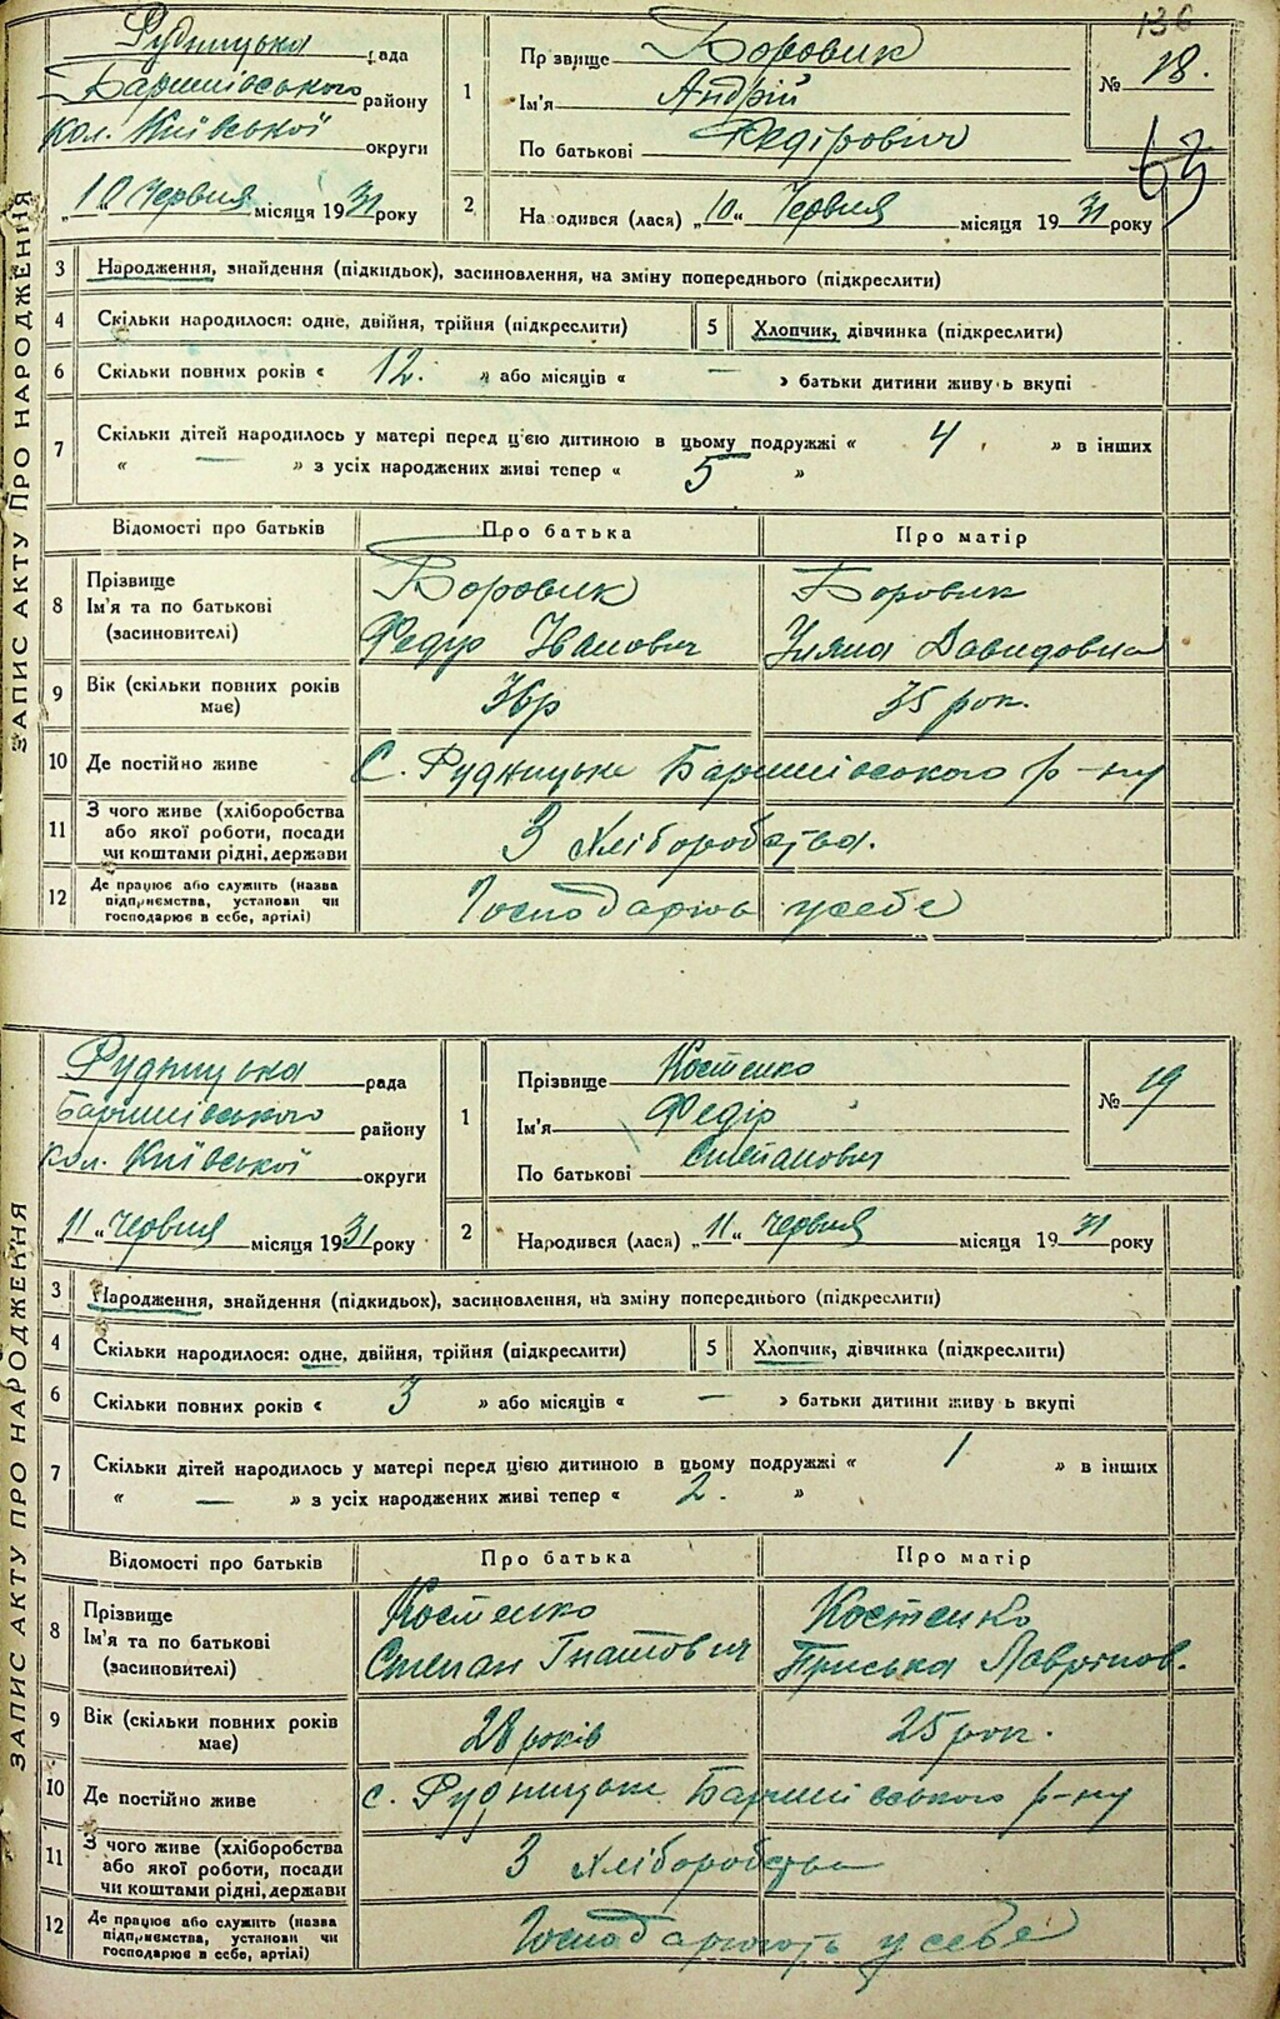 136
Рудницька рада
Баришівського району
кол. Київської округи
„10“ Червня місяця 1931 року
1
Прізвище Боровик
Ім'я Андрій
По батькові Федірович
№ 18.
63
2
На одився (лася) „10“ Червня місяця 1931 року
ЗАПИС АКТУ ПРО НАРОДЖЕННЯ
3 Народження, знайдення (підкидьок), засиновлення, на зміну попереднього (підкреслити)
4 Скільки народилося: одне, двійня, трійня (підкреслити) 5 Хлопчик, дівчинка (підкреслити)
6 Скільки повних років « 12. » або місяців « — » батьки дитини живу ь вкупі
7 Скільки дітей народилось у матері перед цією дитиною в цьому подружжі « 4 » в інших
« — » з усіх народжених живі тепер « 5 »
Відомості про батьків Про батька Про матір
8 Прізвище
Ім'я та по батькові
(засиновителі)
Боровик
Федір Іванович
Боровик
Уляна Давидовна
9 Вік (скільки повних років має) 36р 35 рок.
10 Де постійно живе С. Рудницьке Баришівського р-ну
11 З чого живе (хліборобства
або якої роботи, посади
чи коштами рідні, держави
З хліборобства.
12 Де працює або служить (назва
підприємства, установи чи
господарює в себе, артілі)
Господарює усебе
Рудницька рада
Баришівського району
кол. Київської округи
„11“ червня місяця 1931 року
1
Прізвище Костенко
Ім'я Федір
По батькові Степанович
№ 19
2
Народився (лася) „11“ червня місяця 1931 року
ЗАПИС АКТУ ПРО НАРОДЖЕННЯ
3 Народження, знайдення (підкидьок), засиновлення, на зміну попереднього (підкреслити)
4 Скільки народилося: одне, двійня, трійня (підкреслити) 5 Хлопчик, дівчинка (підкреслити)
6 Скільки повних років « 3 » або місяців « — » батьки дитини живу ь вкупі
7 Скільки дітей народилось у матері перед цією дитиною в цьому подружжі « 1 » в інших
« — » з усіх народжених живі тепер « 2. »
Відомості про батьків Про батька Про матір
8 Прізвище
Ім'я та по батькові
(засиновителі)
Костенко
Степан Гнатович
Костенко
Приська Лаврінов.
9 Вік (скільки повних років має) 28 років 25 рок.
10 Де постійно живе с. Рудницьке Баришівського р-ну
11 З чого живе (хліборобства
або якої роботи, посади
чи коштами рідні, держави
З хліборобства
12 Де працює або служить (назва
підприємства, установи чи
господарює в себе, артілі)
Господарюють у себе